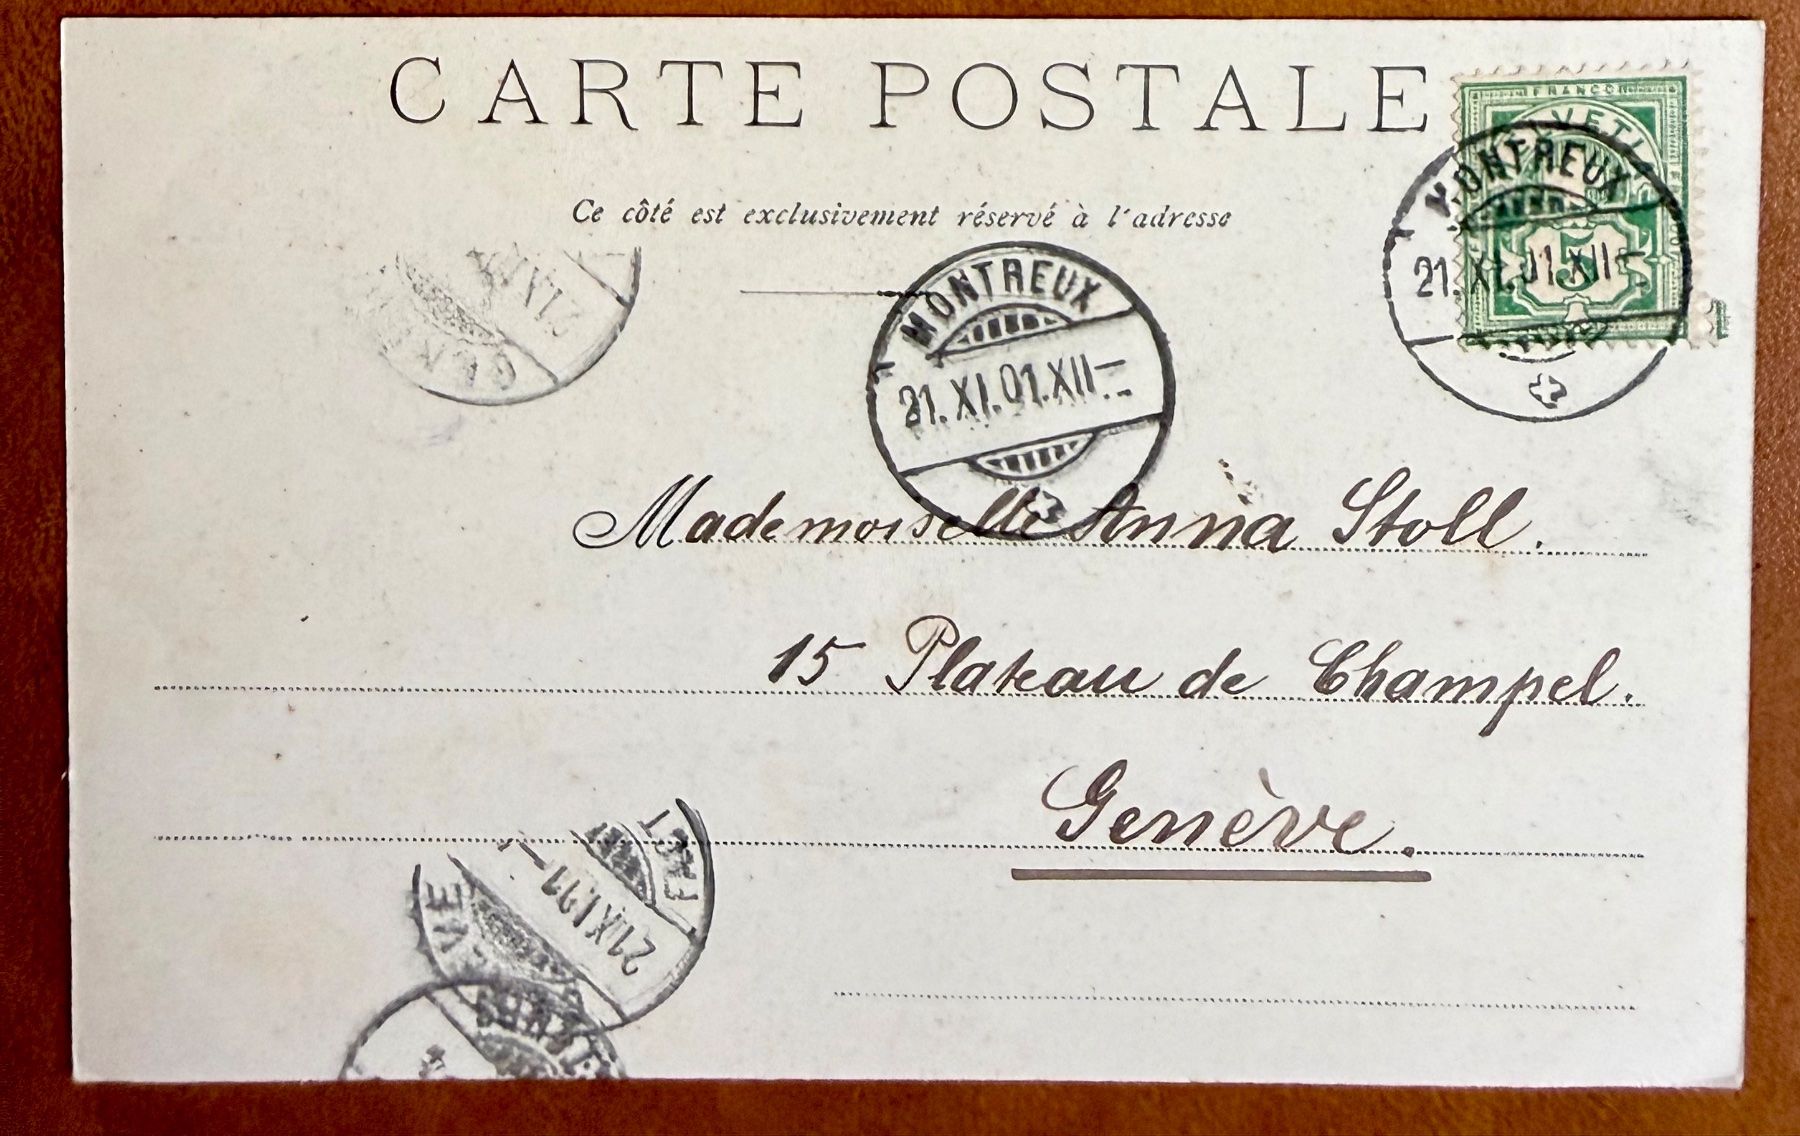 CARTE POSTALE
Ce côté est exclusivement réservé à l'adresse
FRANCO
HELVETIA
5
MONTREUX
21.XI.01.XII
MONTREUX
21.XI.01.XII
21.XI
Mademoiselle Anna Stoll.
15 Plateau de Champel.
Genève.
21.XI.01